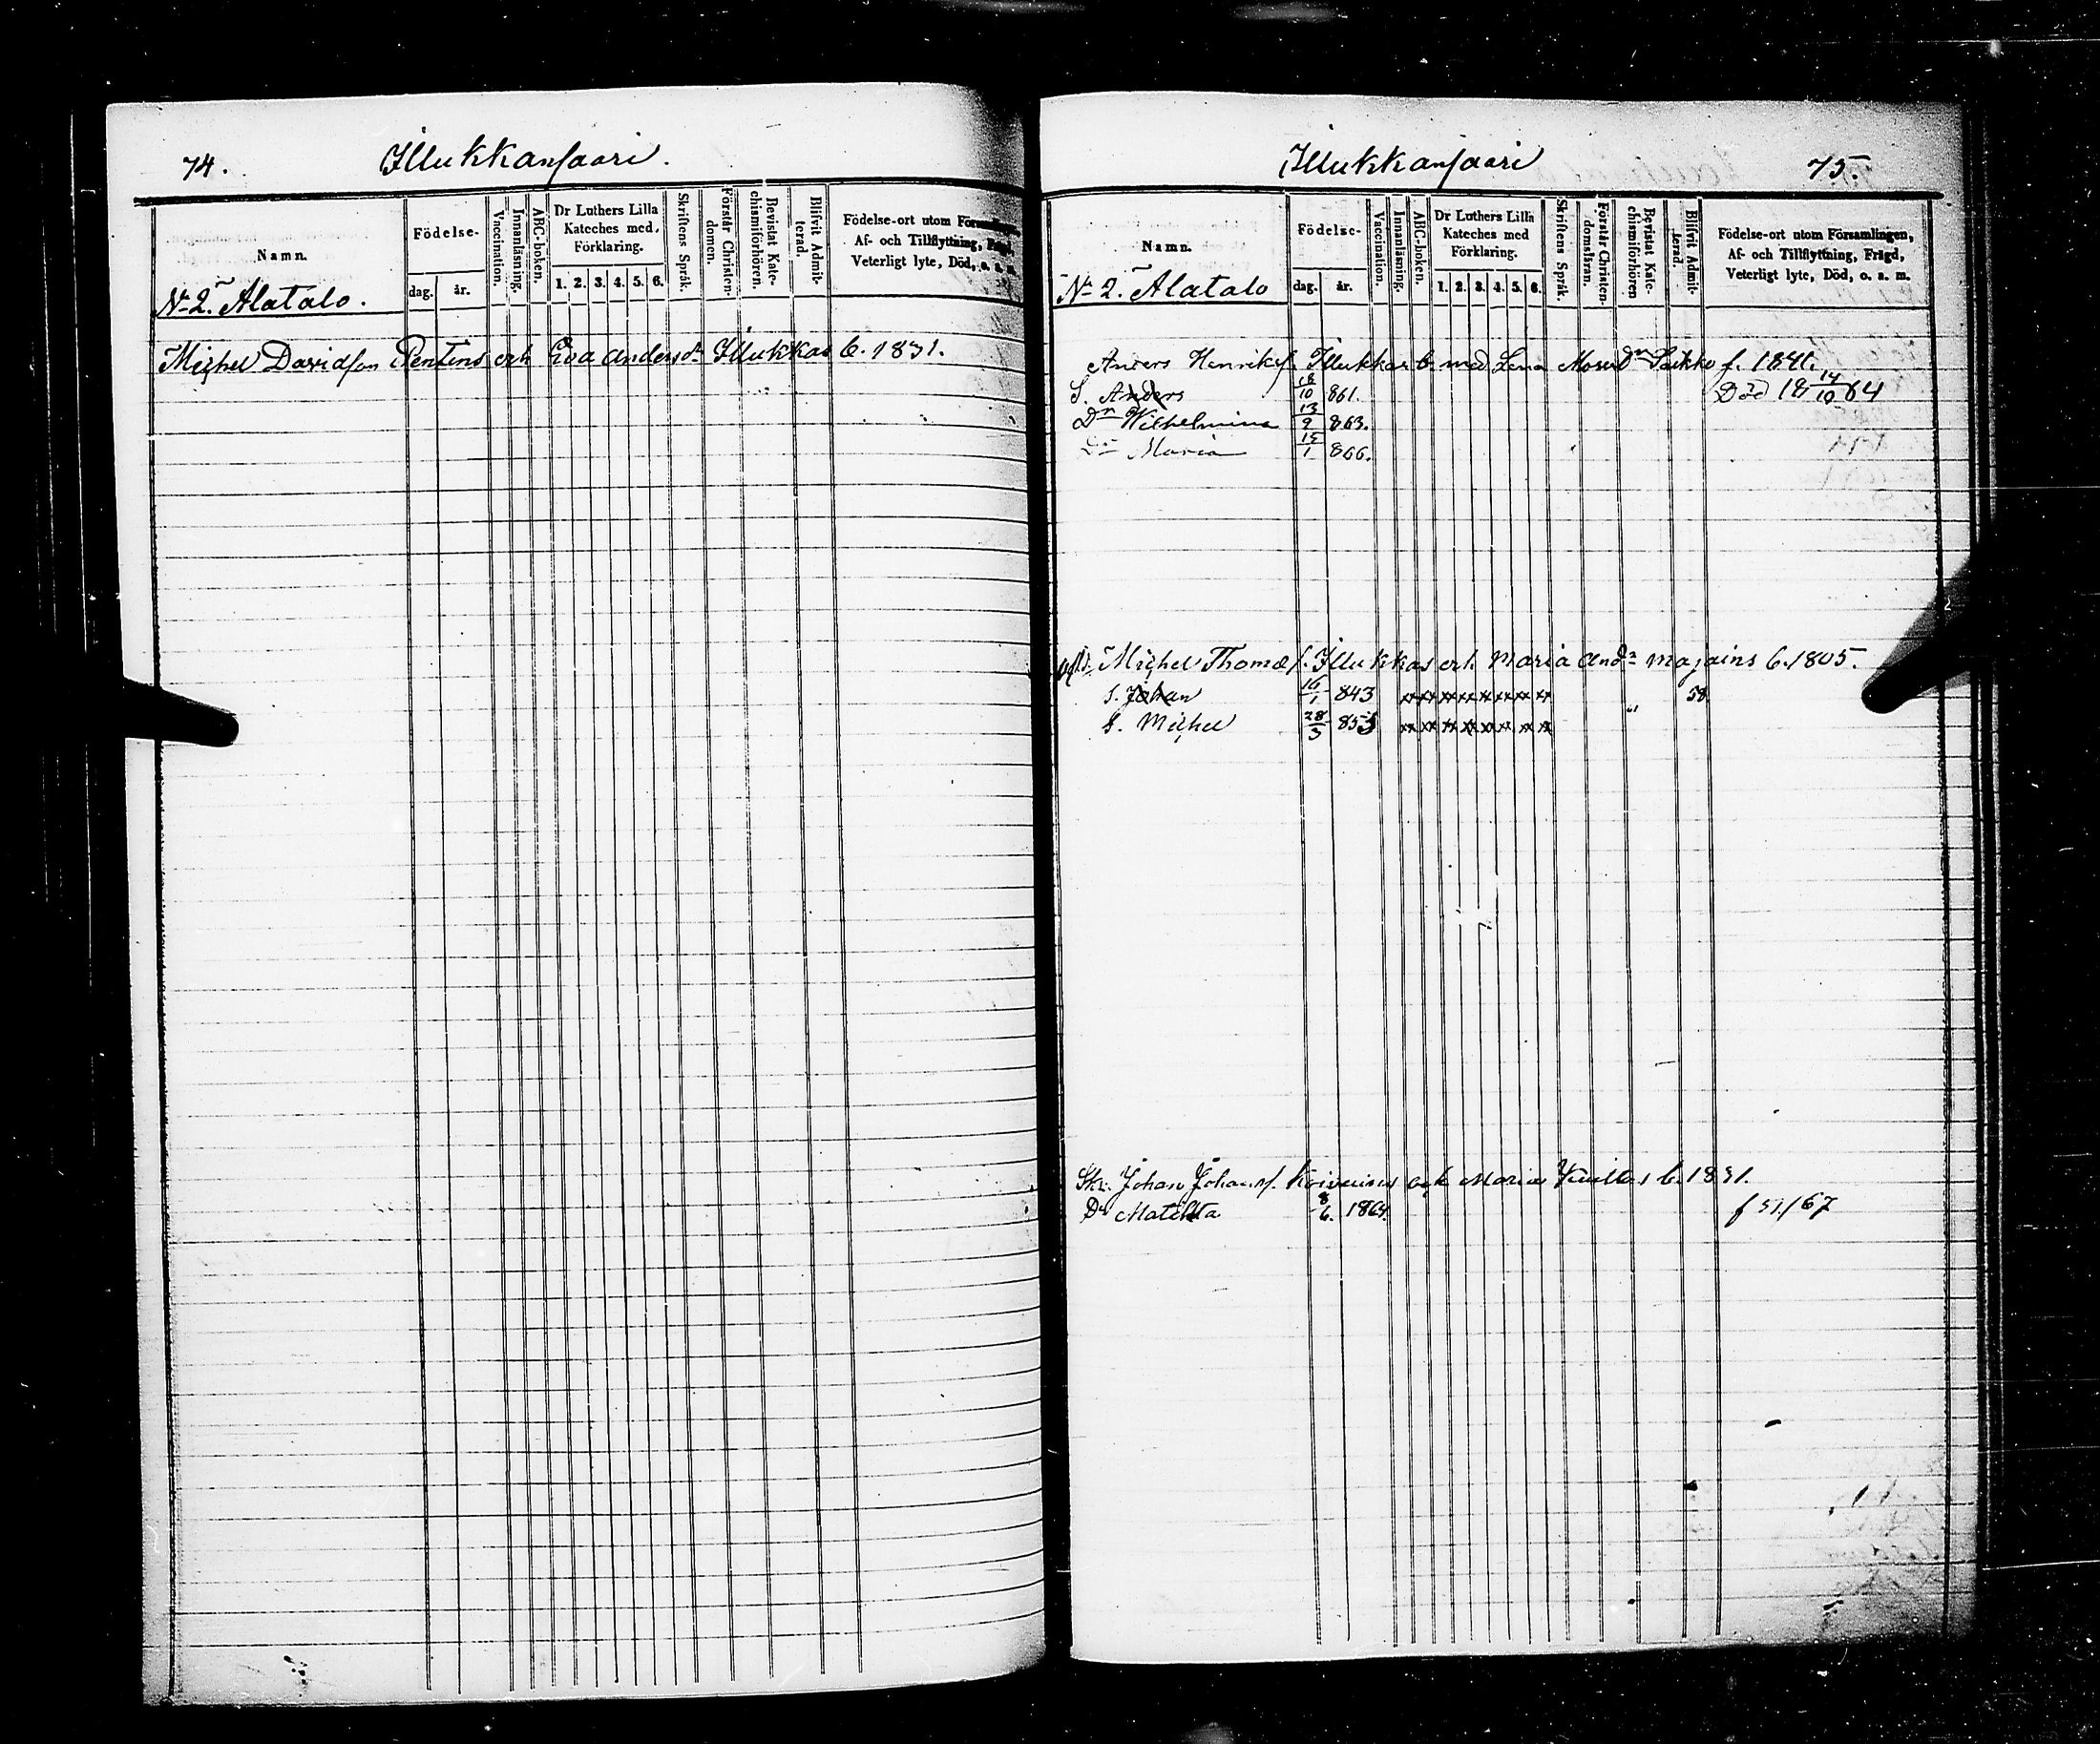 74. Illukkansaari.
Namn.
Födelse-
dag. år.
Vaccination.
Innanläsning.
ABC-boken.
Dr Luthers Lilla Kateches med Förklaring.
1. 2. 3. 4. 5. 6.
Skriftens Språk.
Förstår Christen-domen.
Bevistat Kate-chismiförhören.
Blifvit Admit-terad.
Födelse-ort utom Församlingen,
Af- och Tillflyttning, Frägd,
Veterligt lyte, Död, o. s. m.
No 2. Alatalo.
Michel Davidson Pentins och Eva Andersdr Illukkas b. 1831.
Illukkansaari 75.
Namn.
Födelse-
dag. år.
Vaccination.
Innanläsning.
ABC-boken.
Dr Luthers Lilla Kateches med Förklaring.
1. 2. 3. 4. 5. 6.
Skriftens Språk.
Förstår Christen-domsläran.
Bevistat Kate-chismiförhören
Blifvit Admit-terad.
Födelse-ort utom Församlingen,
Af- och Tillflyttning, Frägd,
Veterligt lyte, Död, o. s. m.
No 2. Alatalo
Anders Henriks. Illukkas b. med Lena Mosesdr Saikko f. 1841.
S. Anders 18/10 861. Död 18 14/10 64
Dr Wilhelmina 13/9 863.
Dr Maria 15/1 866.
Michel Thomæs. Illukkas och Maria Andr Majains b. 1805.
S. Johan 16/1 843 58
S. Michel 28/3 853
Johan Johans. Koivuinus och Maria b. 1831.
Dr Matilta 8/6. 1864. f 51/67